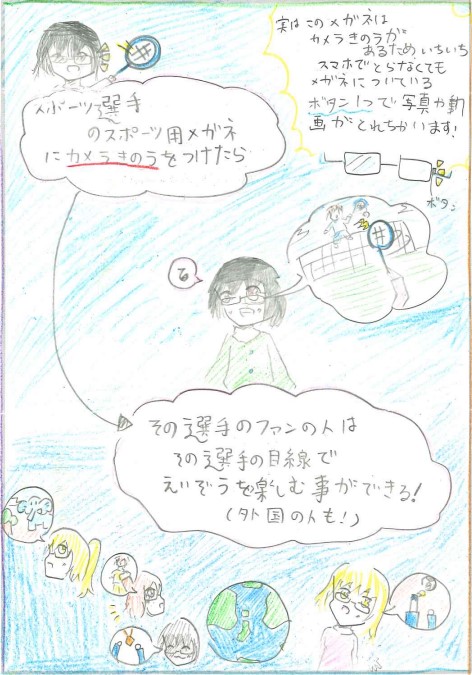 実はこのメガネは
カメラきのうが
あるため いちいち
スマホでとらなくても
メガネについている
ボタン1つで写真や動
画がとれちゃいます!
ボタン
スポーツ選手
のスポーツ用メガネ
にカメラきのうをつけたら
その選手のファンの人は
その選手の目線で
えいぞうを楽しむ事ができる!
(外国の人も!)